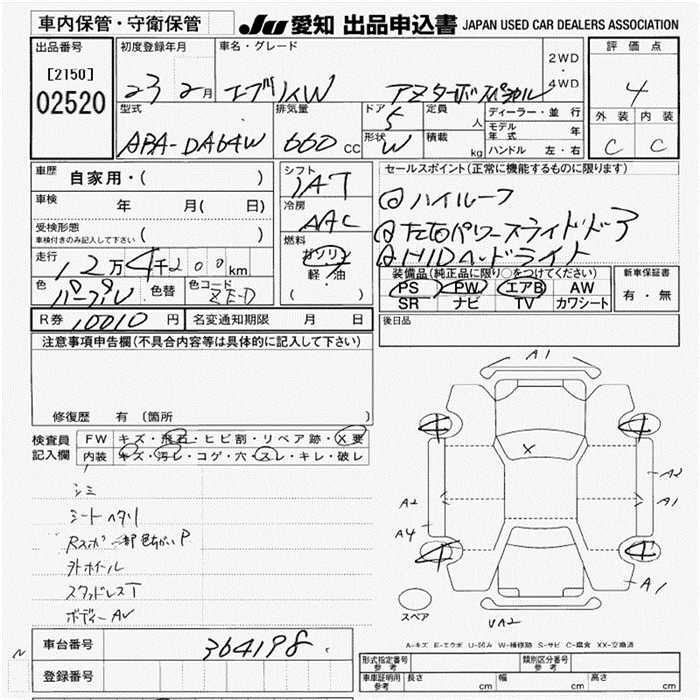 車内保管・守衛保管
JU 愛知 出品申込書 JAPAN USED CAR DEALERS ASSOCIATION
出品番号
[2150]
02520
初度登録年月
23 2月
車名・グレード
エブリィW PZターボスペシャル
2WD
・
4WD
評価点
4
外装 内装
C C
型式
ABA-DA64W
排気量
660 cc
ドア
5
形状
W
定員
人
積載
kg
ディーラー・並行
モデル年式 年
ハンドル 左・右
車歴 自家用・( )
車検 年 月( 日)
受検形態
車検付きのみ記入して下さい ( )
走行 12万4千200 km
色 パープル 色替 色コード ZE-D
シフト
IAT
冷房
AAC
燃料
ガソリン
軽・油
( )
セールスポイント(正常に機能するものに限ります)
①ハイルーフ
②左右パワースライドドア
③HIDヘッドライト
装備品(純正品に限り○をつけてください)
PS PW エアB AW
SR ナビ TV カワシート
新車保証書
有・無
R券 10010 円 名変通知期限 月 日
後日品
注意事項申告欄(不具合内容等は具体的に記入して下さい)
修復歴 有 〔箇所 〕
検査員記入欄
FW キズ・飛石・ヒビ割・リペア跡・X要
内装 キズ・汚レ・コゲ・穴・スレ・キレ・破レ
シミ
シートヘタリ
Rスポ 一部色ちがいP
外ホイール
スタッドレスT
ボディーAV
A1
X
A2
A4
A2
A1
A1
UA2
スペア
A-キズ E-エクボ U-凹み W-補修跡 S-サビ C-腐食 XX-交換済
車台番号 364198
登録番号
形式指定番号 参考
類別区分番号 参考
車庫証明用 参考 長さ cm 幅 cm 高さ cm